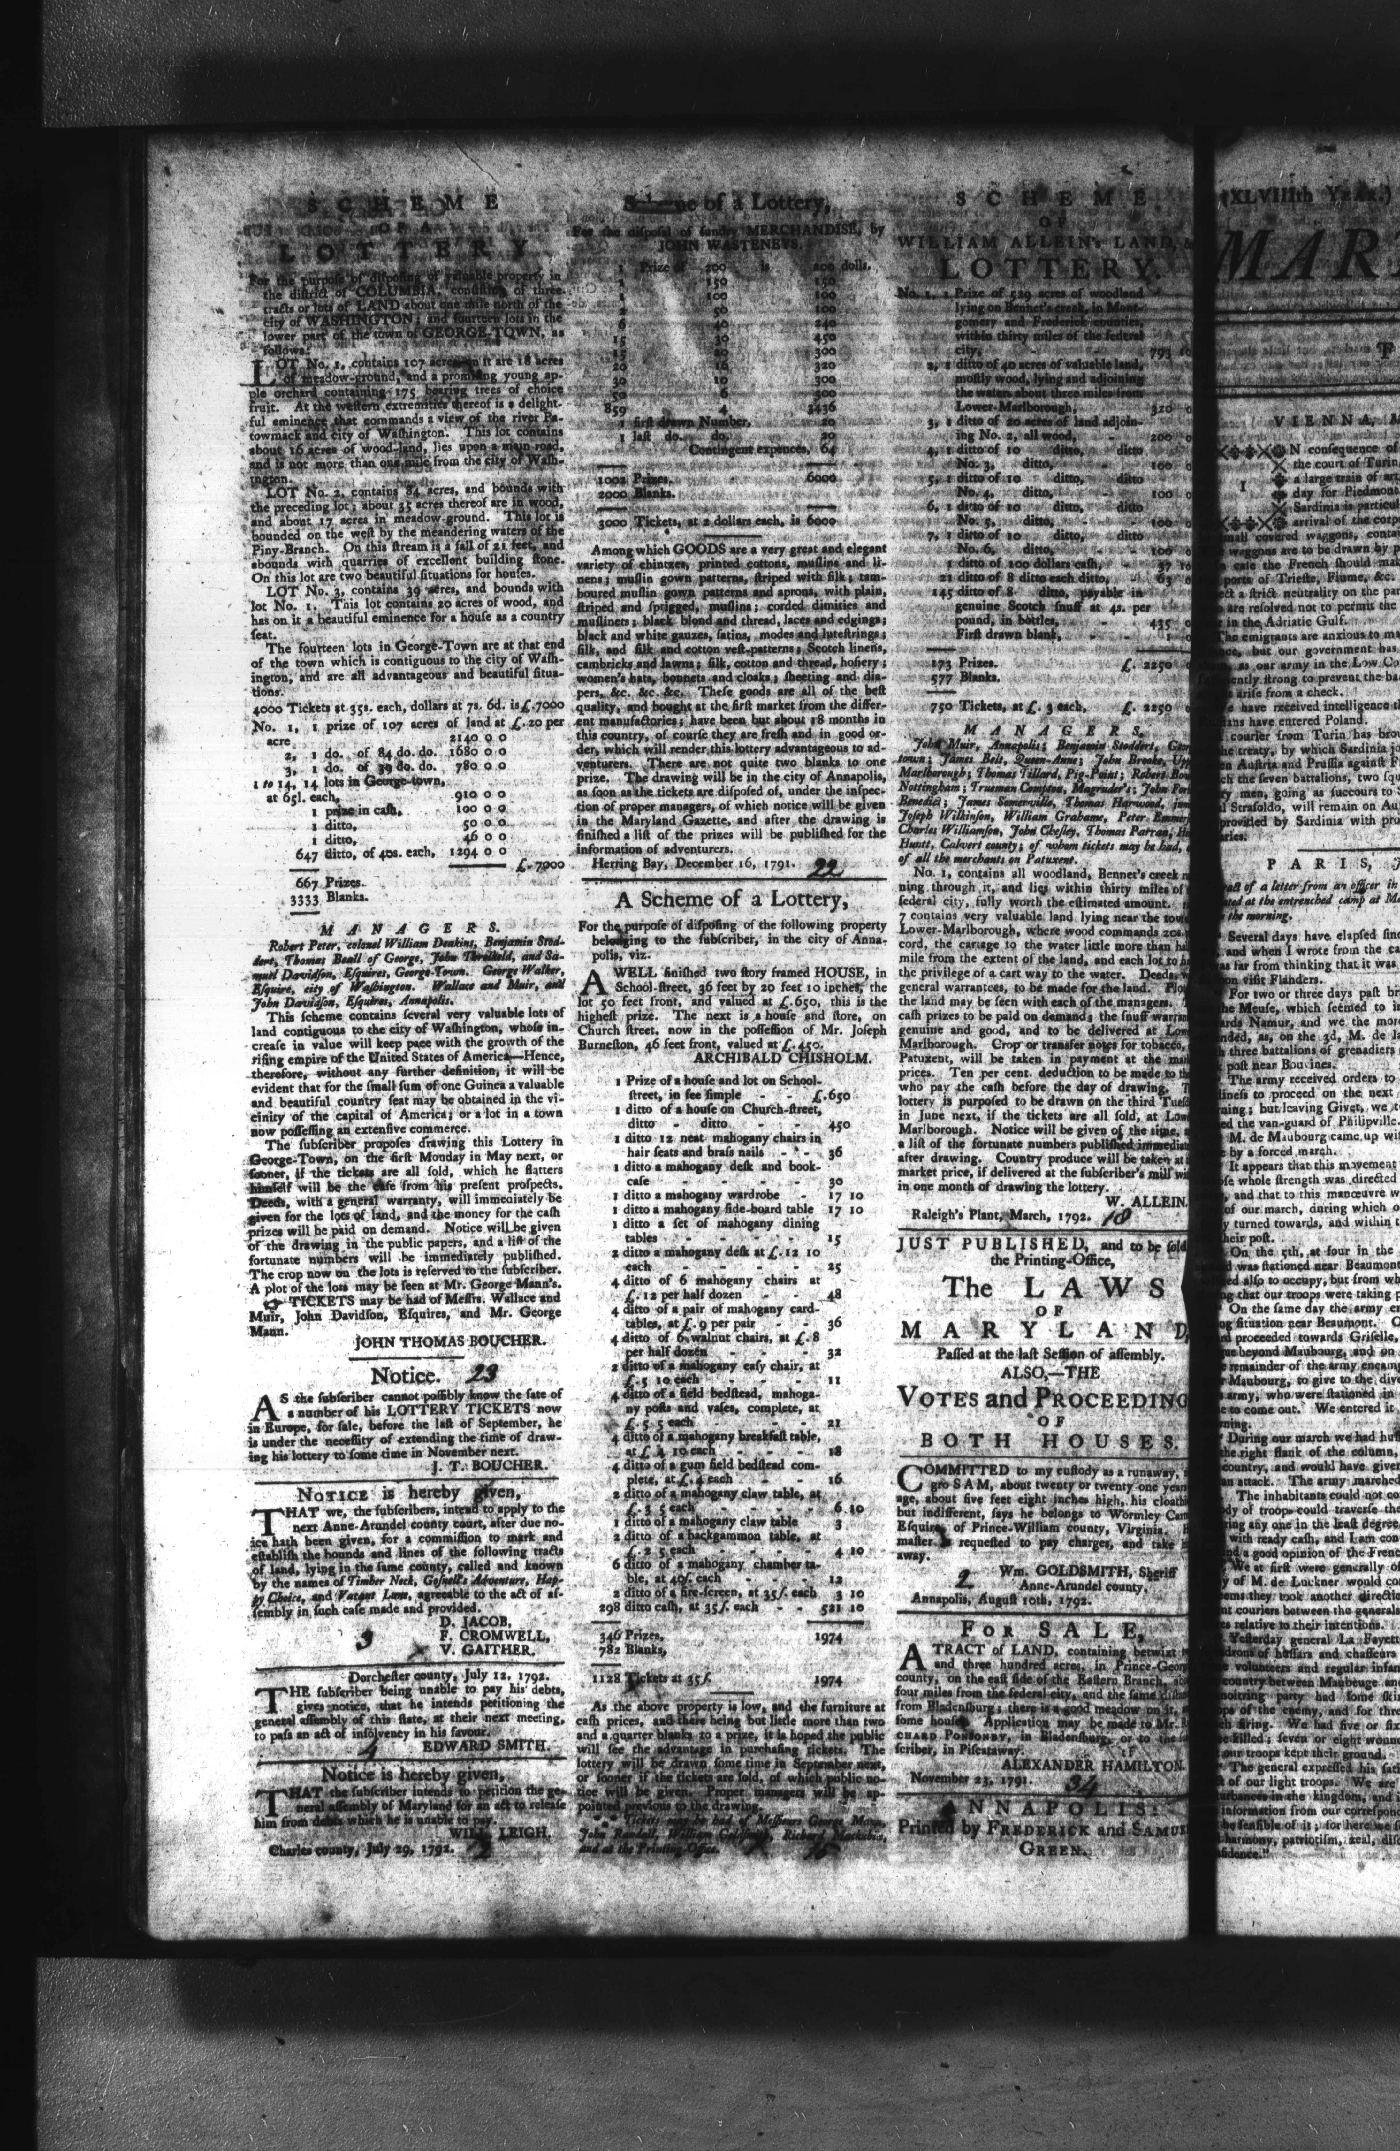 SCHEME
OF A
LOTTERY,
For the purpose of disposing of valuable property in
the district of COLUMBIA, consisting of three
tracts or lots of LAND about one mile north of the
city of WASHINGTON; and fourteen lots in the
lower part of the town of GEORGE-TOWN, as
follows:
LOT No. 1, contains 107 acres—in it are 18 acres
of meadow-ground, and a promising young ap-
ple orchard containing 175 bearing trees of choice
fruit. At the western extremities thereof is a delight-
ful eminence that commands a view of the river Pa-
towmack and city of Washington. This lot contains
about 16 acres of wood-land, lies upon a main road,
and is not more than one mile from the city of Wash-
ington.
LOT No. 2, contains 84 acres, and bounds with
the preceding lot; about 35 acres thereof are in wood,
and about 17 acres in meadow-ground. This lot is
bounded on the west by the meandering waters of the
Piny-Branch. On this stream is a fall of 21 feet, and
abounds with quarries of excellent building stone.
On this lot are two beautiful situations for houses.
LOT No. 3, contains 39 acres, and bounds with
lot No. 1. This lot contains 20 acres of wood, and
has on it a beautiful eminence for a house as a country
seat.
The fourteen lots in George-Town are at that end
of the town which is contiguous to the city of Wash-
ington, and are all advantageous and beautiful situa-
tions.
4000 Tickets at 35s. each, dollars at 7s. 6d. is £.7000
No. 1, 1 prize of 107 acres of land at £.20 per
acre 2140 0 0
2, 1 do. of 84 do. do. 1680 0 0
3, 1 do. of 39 do. do. 780 0 0
1 to 14, 14 lots in George-town,
at 65l. each, 910 0 0
1 prize in cash, 100 0 0
1 ditto, 50 0 0
1 ditto, 46 0 0
647 ditto, of 40s. each, 1294 0 0
£.7000
667 Prizes.
3333 Blanks.
MANAGERS.
Robert Peter, colonel William Deakins, Benjamin Stod-
dert, Thomas Beall of George, John Threlkeld, and Sa-
muel Davidson, Esquires, George-Town. George Walker,
Esquire, city of Washington. Wallace and Muir, and
John Davidson, Esquires, Annapolis.
This scheme contains several very valuable lots of
land contiguous to the city of Washington, whose in-
crease in value will keep pace with the growth of the
rising empire of the United States of America—Hence,
therefore, without any further definition, it will be
evident that for the small sum of one Guinea a valuable
and beautiful country seat may be obtained in the vi-
cinity of the capital of America; or a lot in a town
now possessing an extensive commerce.
The subscriber proposes drawing this Lottery in
George-Town, on the first Monday in May next, or
sooner, if the tickets are all sold, which he flatters
himself will be the case from his present prospects.
Deeds, with a general warranty, will immediately be
given for the lots of land, and the money for the cash
prizes will be paid on demand. Notice will be given
of the drawing in the public papers, and a list of the
fortunate numbers will be immediately published.
The crop now on the lots is reserved to the subscriber.
A plot of the lots may be seen at Mr. George Mann's.
☞ TICKETS may be had of Messrs. Wallace and
Muir, John Davidson, Esquires, and Mr. George
Mann.
JOHN THOMAS BOUCHER.
Notice. 23
AS the subscriber cannot possibly know the fate of
a number of his LOTTERY TICKETS now
in Europe, for sale, before the last of September, he
is under the necessity of extending the time of draw-
ing his lottery to some time in November next.
J. T. BOUCHER.
NOTICE is hereby given,
THAT we, the subscribers, intend to apply to the
next Anne-Arundel county court, after due no-
ice hath been given, for a commission to mark and
establish the bounds and lines of the following tracts
of land, lying in the same county, called and known
by the names of Timber Neck, Gosnell's Adventure, Hap-
py Choice, and Vacant Lane, agreeable to the act of as-
sembly in such case made and provided.
D. JACOB,
3 F. CROMWELL,
V. GAITHER.
Dorchester county, July 12, 1792.
THE subscriber being unable to pay his debts,
gives notice, that he intends petitioning the
general assembly of this state, at their next meeting,
to pass an act of insolvency in his favour.
4 EDWARD SMITH.
Notice is hereby given,
THAT the subscriber intends to petition the ge-
neral assembly of Maryland for an act to release
him from debts which he is unable to pay.
LEIGH.
Charles county, July 29, 1792.
Scheme of a Lottery,
For the disposal of sundry MERCHANDISE, by
JOHN WASTENEYS.
1 Prize of 200 is 200 dolls.
1 150 150
1 100 100
2 50 100
6 40 240
15 30 450
15 20 300
20 16 320
30 10 300
50 6 300
859 4 3436
1 first drawn Number, 20
1 last do. do. 20
Contingent expences, 64
1002 Prizes. 6000
2000 Blanks.
3000 Tickets, at 2 dollars each, is 6000
Among which GOODS are a very great and elegant
variety of chintzes, printed cottons, muslins and li-
nens; muslin gown patterns, striped with silk; tam-
boured muslin gown patterns and aprons, with plain,
striped and sprigged, muslins; corded dimities and
muslinets; black blond and thread, laces and edgings;
black and white gauzes, satins, modes and lutestrings;
silk, and silk and cotton vest-patterns; Scotch linens,
cambricks and lawns; silk, cotton and thread, hosiery;
women's hats, bonnets and cloaks; sheeting and dia-
pers, &c. &c. &c. These goods are all of the best
quality, and bought at the first market from the differ-
ent manufactories; have been but about 18 months in
this country, of course they are fresh and in good or-
der, which will render this lottery advantageous to ad-
venturers. There are not quite two blanks to one
prize. The drawing will be in the city of Annapolis,
as soon as the tickets are disposed of, under the inspec-
tion of proper managers, of which notice will be given
in the Maryland Gazette, and after the drawing is
finished a list of the prizes will be published for the
information of adventurers.
Herring Bay, December 16, 1791. 22
A Scheme of a Lottery,
For the purpose of disposing of the following property
belonging to the subscriber, in the city of Anna-
polis, viz.
A WELL finished two story framed HOUSE, in
School-street, 36 feet by 20 feet 10 inches, the
lot 50 feet front, and valued at £.650, this is the
highest prize. The next is a house and store, on
Church street, now in the possession of Mr. Joseph
Burneston, 46 feet front, valued at £.450.
ARCHIBALD CHISHOLM.
1 Prize of a house and lot on School-
street, in fee simple - - £.650
1 ditto of a house on Church-street,
ditto - ditto - - 450
1 ditto 12 neat mahogany chairs in
hair seats and brass nails - - 36
1 ditto a mahogany desk and book-
case - - - - 30
1 ditto a mahogany wardrobe - 17 10
1 ditto a mahogany side-board table 17 10
1 ditto a set of mahogany dining
tables - - - - 15
2 ditto a mahogany desk at £.12 10
each - - - - 25
4 ditto of 6 mahogany chairs at
£.12 per half dozen - - 48
4 ditto of a pair of mahogany card-
tables, at £.9 per pair - - 36
4 ditto of 6 walnut chairs, at £.8
per half dozen - - - 32
2 ditto of a mahogany easy chair, at
£.5 10 each - - - 11
4 ditto of a field bedstead, mahoga-
ny posts and vases, complete, at
£.5 5 each - - - 21
4 ditto of a mahogany breakfast table,
at £.4 10 each - - - 18
4 ditto of a gum field bedstead com-
plete, at £.4 each - - 16
2 ditto of a mahogany claw table, at
£.3 5 each - - - 6 10
1 ditto of a mahogany claw table 3
2 ditto of a backgammon table, at
£.2 5 each - - - 4 10
6 ditto of a mahogany chamber ta-
ble, at 40s. each - - - 12
2 ditto of a fire-screen, at 35s. each 3 10
298 ditto cash, at 35s. each - - 521 10
346 Prizes, 1974
782 Blanks,
1128 Tickets at 35s. 1974
As the above property is low, and the furniture at
cash prices, and there being but little more than two
and a quarter blanks to a prize, it is hoped the public
will see the advantage in purchasing tickets. The
lottery will be drawn some time in September next,
or sooner if the tickets are sold, of which public no-
tice will be given. Proper managers will be ap-
pointed previous to the drawing.
Tickets may be had of Messieurs George Mann,
John Randall, Richard Mackubin,
and at the Printing-Office.
SCHEME
OF
WILLIAM ALLEIN's LAND,
LOTTERY.
No. 1, 1 Prize of 529 acres of woodland
lying on Bennet's creek, in Mont-
gomery and Frederick counties,
within thirty miles of the federal
city, - - 793 10
2, 1 ditto of 40 acres of valuable land,
mostly wood, lying and adjoining
the waters about three miles from
Lower-Marlborough, 320 0
3, 1 ditto of 20 acres of land adjoin-
ing No. 2, all wood, - 200 0
4, 1 ditto of 10 ditto, ditto
No. 3, ditto, - 100 0
5, 1 ditto of 10 ditto, ditto
No. 4, ditto, - 100 0
6, 1 ditto of 10 ditto, ditto
No. 5, ditto, - 100 0
7, 1 ditto of 10 ditto, ditto
No. 6, ditto, - 100 0
1 ditto of 100 dollars cash, - 37 10
21 ditto of 8 ditto each ditto, - 63 0
145 ditto of 8 ditto, payable in
genuine Scotch snuff at 4s. per
pound, in bottles, - 435 0
First drawn blank, - 1 0
173 Prizes. £. 2250 0
577 Blanks.
750 Tickets, at £.3 each, £. 2250 0
MANAGERS.
John Muir, Annapolis; Benjamin Stoddert, Geor
town; James Belt, Queen-Anne; John Brooke, Upp
Marlborough; Thomas Tillard, Pig-Point; Robert Bow
Nottingham; Trueman Compton, Magruder's; John For
Benedict; James Somerville, Thomas Harwood, jun
Joseph Wilkinson, William Grahame, Peter Emmer
Charles Williamson, John Chesley, Thomas Parran, H
Huntt, Calvert county; of whom tickets may be had,
of all the merchants on Patuxent.
No. 1, contains all woodland, Bennet's creek r
ning through it, and lies within thirty miles of
federal city, fully worth the estimated amount.
7 contains very valuable land lying near the tow
Lower-Marlborough, where wood commands 20s.
cord, the cariage to the water little more than hal
mile from the extent of the land, and each lot to ha
the privilege of a cart way to the water. Deeds, w
general warrantees, to be made for the land. Plo
the land may be seen with each of the managers. T
cash prizes to be paid on demand; the snuff warran
genuine and good, and to be delivered at Low
Marlborough. Crop or transfer notes for tobacco,
Patuxent, will be taken in payment at the mar
prices. Ten per cent. deduction to be made to th
who pay the cash before the day of drawing. T
lottery is purposed to be drawn on the third Tuesd
in June next, if the tickets are all sold, at Low
Marlborough. Notice will be given of the time, a
a list of the fortunate numbers published immediat
after drawing. Country produce will be taken at
market price, if delivered at the subscriber's mill wi
in one month of drawing the lottery.
W. ALLEIN.
Raleigh's Plant, March, 1792. 18
JUST PUBLISHED, and to be sold
the Printing-Office,
The LAWS
OF
MARYLAND,
Passed at the last Session of assembly.
ALSO,—THE
VOTES and PROCEEDING
OF
BOTH HOUSES.
COMMITTED to my custody as a runaway,
gro SAM, about twenty or twenty one year
age, about five feet eight inches high, his cloathi
but indifferent, says he belongs to Wormley Car
Esquire, of Prince-William county, Virginia, H
master is requested to pay charges, and take h
away.
Wm. GOLDSMITH, Sheriff
2 Anne-Arundel county,
Annapolis, August 10th, 1792.
FOR SALE,
A TRACT of LAND, containing betwixt
and three hundred acres, in Prince-Geor
county, on the east side of the Eastern Branch,
four miles from the federal city, and the same dista
from Bladensburg; there is a good meadow on it, a
some houses. Application may be made to Mr. R
CHARD PONSONBY, in Bladensburg, or to the s
scriber, in Piscataway. tf
ALEXANDER HAMILTON.
November 23, 1791. 34
ANNAPOLIS:
Printed by FREDERICK and SAMUE
GREEN.
(XLVIIIth Year.)
MAR
VIENNA, M
IN consequence of
the court of Turin
a large train of art
day for Piedmont
Sardinia is particul
arrival of the cont
mall covered waggons, conta
waggons are to be drawn by
case the French should mak
ports of Trieste, Fiume, &c.
ect a strict neutrality on the par
are resolved not to permit the
in the Adriatic Gulf.
The emigrants are anxious to ma
nce, but our government has
as our army in the Low Co
ently strong to prevent the ba
arise from a check.
have received intelligence th
ians have entered Poland.
courier from Turin has brou
the treaty, by which Sardinia jo
en Austria and Prussia against F
ch the seven battalions, two squ
ty men, going as succours to S
l Strasoldo, will remain on Aus
provided by Sardinia with pro
aries.
PARIS, J
ract of a letter from an officer in
ated at the entrenched camp at Ma
the morning.
Several days have elapsed sinc
and when I wrote from the ca
as far from thinking that it was
on visit Flanders.
For two or three days past br
the Meuse, which seemed to h
ards Namur, and we the mor
nded, as, on the 3d, M. de la
h three battalions of grenadiers
post near Bouvines.
The army received orders to
liness to proceed on the next
ning; but leaving Givet, we t
ed the van-guard of Philipville.
M. de Maubourg came up wit
e by a forced march.
It appears that this movement
ose whole strength was directed
and that to this manœuvre w
of our march, during which o
y turned towards, and within t
heir post.
On the 5th, at four in the
d was stationed near Beaumont
ed also to occupy, but from wh
ng that our troops were taking p
On the same day the army en
og situation near Beaumont. O
d proceeded towards Griselle,
ne beyond Maubourg, and on
remainder of the army encamp
Maubourg, to give to the dive
army, who were stationed in
e to come out. We entered it
rning.
During our march we had huss
the right flank of the column,
country, and would have given
an attack. The army marched
The inhabitants could not co
dy of troops could traverse th
ring any one in the least degree.
with ready cash, and I am con
nd a good opinion of the Frenc
We at first were generally of
y of M. de Luckner would co
ems they took another directio
nt couriers between the general
es relative to their intentions.
Yesterday general La Fayett
drons of hussars and chasseurs
volunteers and regular infan
country between Maubeuge and
noitring party had some skir
ps of the enemy, and for three
ch firing. We had five or six
killed; seven or eight wound
our troops kept their ground.
The general expressed his satis
of our light troops. We are
urbances in the kingdom, and i
information from our correspond
be sensible of it; for here we s
harmony, patriotism, zeal, disc
fidence."